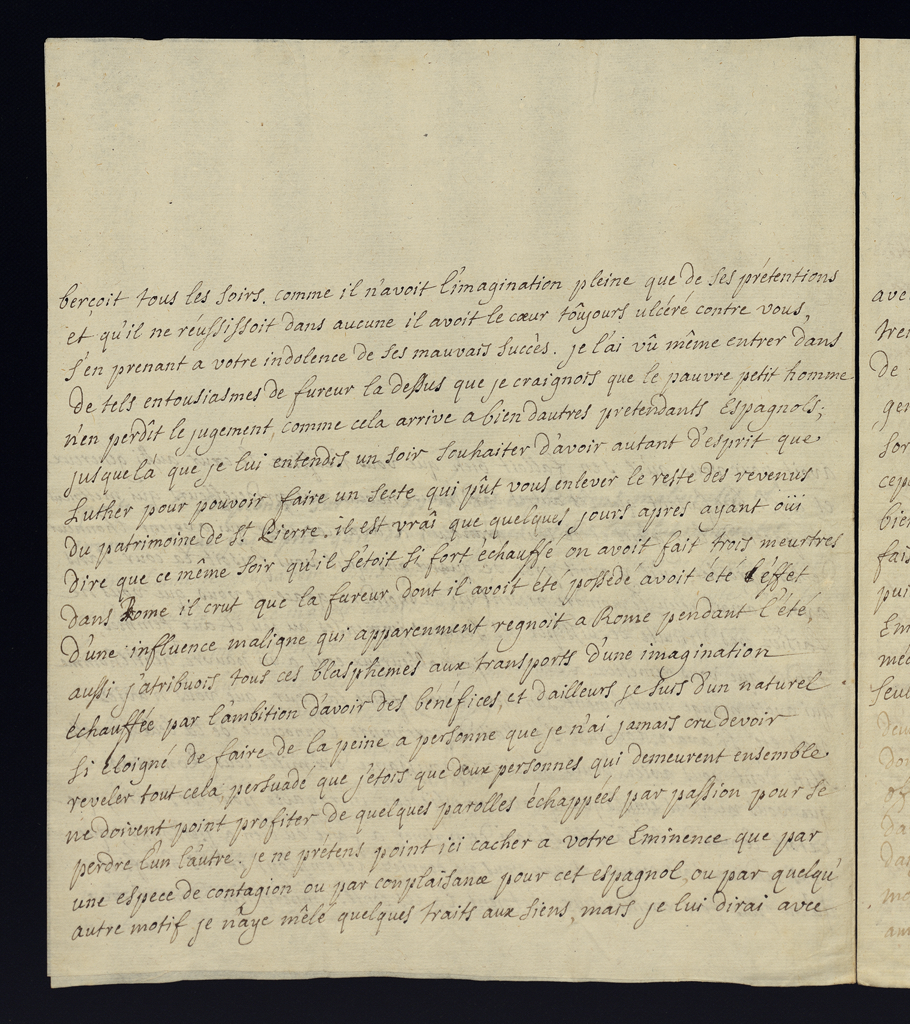 berçoit tous les soirs. comme il n'avoit l'imagination pleine que de ses prétentions
et qu'il ne réussissoit dans aucune il avoit le cœur toûjours ulcéré contre vous,
s'en prenant a votre indolence de ses mauvais succès. je l'ai vû même entrer dans
de tels entousiasmes de fureur la dessus que je craignois que le pauvre petit homme
n'en perdît le jugement, comme cela arrive a bien dautres prétendants Espagnols;
jusque là que je lui entendis un soir souhaiter d'avoir autant d'esprit que
Luther pour pouvoir faire un secte qui pût vous enlever le reste des revenus
du patrimoine de St. Pierre. il est vraî que quelques jours apres ayant oüi
dire que ce même soir qu'il s'étoit si fort échauffé on avoit fait trois meurtres
dans Rome il crut que la fureur dont il avoit été possédé avoit été l'effet
d'une influence maligne qui apparenment regnoit a Rome pendant l'été,
aussi j'atribuois tous ces blasphemes aux transports d'une imagination
échauffée par l'ambition d'avoir des bénéfices, et d'ailleurs je suis d'un naturel
si éloigné de faire de la peine a personne que je n'ai jamais cru devoir
reveler tout cela, persuadé que j'etois que deux personnes qui demeurent ensemble
ne doivent point profiter de quelques parolles échappées par passion pour se
perdre l'un l'autre. je ne prétens point ici cacher a votre Eminence que par
une espece de contagion ou par conplaisance pour cet espagnol, ou par quelqu'
autre motif je n'aye mêlé quelques traits aux siens, mais je lui dirai avec
ave
de